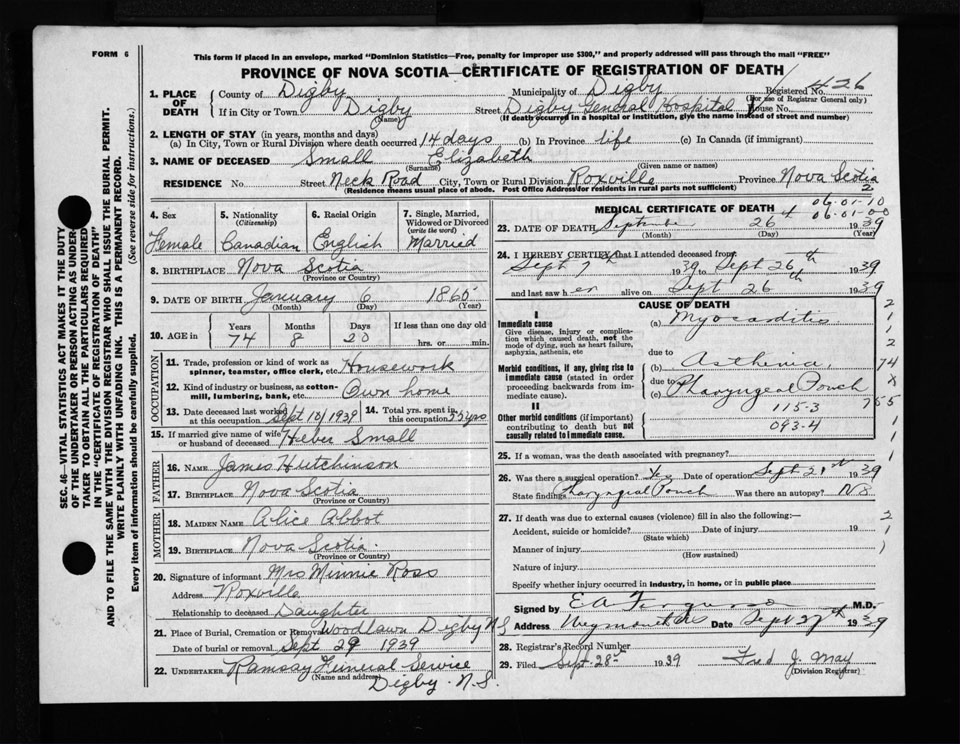 FORM 6
This form if placed in an envelope, marked "Dominion Statistics—Free, penalty for improper use $300," and properly addressed will pass through the mail "FREE"
PROVINCE OF NOVA SCOTIA—CERTIFICATE OF REGISTRATION OF DEATH
1. PLACE OF DEATH
County of Digby Municipality of Digby Registered No. 426
(For use of Registrar General only)
If in City or Town Digby Street Digby General Hospital House No.
(Name) (If death occurred in a hospital or institution, give the name instead of street and number)
2. LENGTH OF STAY (in years, months and days)
(a) In City, Town or Rural Division where death occurred 14 days (b) In Province life (c) In Canada (if immigrant)
3. NAME OF DECEASED Small Elizabeth
(Surname) (Given name or names)
RESIDENCE No. Street Neck Road City, Town or Rural Division Roxville Province Nova Scotia
(Residence means usual place of abode. Post Office Address for residents in rural parts not sufficient)
2
4. Sex
Female
5. Nationality
(Citizenship)
Canadian
6. Racial Origin
English
7. Single, Married, Widowed or Divorced
(write the word)
Married
8. BIRTHPLACE Nova Scotia
(Province or Country)
9. DATE OF BIRTH January 6 1865
(Month) (Day) (Year)
10. AGE in Years Months Days If less than one day old
74 8 20 hrs. or min.
OCCUPATION
11. Trade, profession or kind of work as spinner, teamster, office clerk, etc. Housework
12. Kind of industry or business, as cotton-mill, lumbering, bank, etc. Own home
13. Date deceased last worked at this occupation Sept 10/1939
14. Total yrs. spent in this occupation 55 yrs
15. If married give name of wife or husband of deceased Heber Small
FATHER
16. NAME James Hutchinson
17. BIRTHPLACE Nova Scotia
(Province or Country)
MOTHER
18. MAIDEN NAME Alice Abbot
19. BIRTHPLACE Nova Scotia
(Province or Country)
20. Signature of informant Mrs Minnie Ross
Address Roxville
Relationship to deceased Daughter
21. Place of Burial, Cremation or Removal Woodlawn Digby N S
Date of burial or removal Sept. 29 1939
22. UNDERTAKER Ramsay Funeral Service
(Name and address) Digby. N.S.
MEDICAL CERTIFICATE OF DEATH
06.01-10
06.01-00
23. DATE OF DEATH September 26th 1939
(Month) (Day) (Year)
24. I HEREBY CERTIFY that I attended deceased from
Sept 7th 1939 to Sept 26th 1939
and last saw her alive on Sept 26 1939
CAUSE OF DEATH
I
Immediate cause
Give disease, injury or complication which caused death, not the mode of dying, such as heart failure, asphyxia, asthenia, etc
(a) Myocarditis
due to
Morbid conditions, if any, giving rise to immediate cause (stated in order proceeding backwards from immediate cause).
(b) Asthenia
due to
(c) Pharyngeal Pouch
II
Other morbid conditions (if important) contributing to death but not causally related to immediate cause.
115-3
093-4
2
1
1
2
74
X
755
1
1
1
25. If a woman, was the death associated with pregnancy?
26. Was there a surgical operation? Yes Date of operation Sept 21st 1939
State findings Pharyngeal Pouch Was there an autopsy? No
27. If death was due to external causes (violence) fill in also the following:—
Accident, suicide or homicide? Date of injury 19
(State which)
Manner of injury
(How sustained)
Nature of injury
Specify whether injury occurred in industry, in home, or in public place
2
1
1
Signed by E A M.D.
Address Date Sept 27th 1939
28. Registrar's Record Number
29. Filed Sept. 28th 1939 Fred J. May
(Division Registrar)
SEC. 46—VITAL STATISTICS ACT MAKES IT THE DUTY
OF THE UNDERTAKER OR PERSON ACTING AS UNDERTAKER
TO OBTAIN ALL THE PARTICULARS REQUIRED
IN THE "CERTIFICATE OF REGISTRATION OF DEATH"
AND TO FILE THE SAME WITH THE DIVISION REGISTRAR WHO SHALL ISSUE THE BURIAL PERMIT.
WRITE PLAINLY WITH UNFADING INK. THIS IS A PERMANENT RECORD.
Every item of information should be carefully supplied. (See reverse side for instructions.)